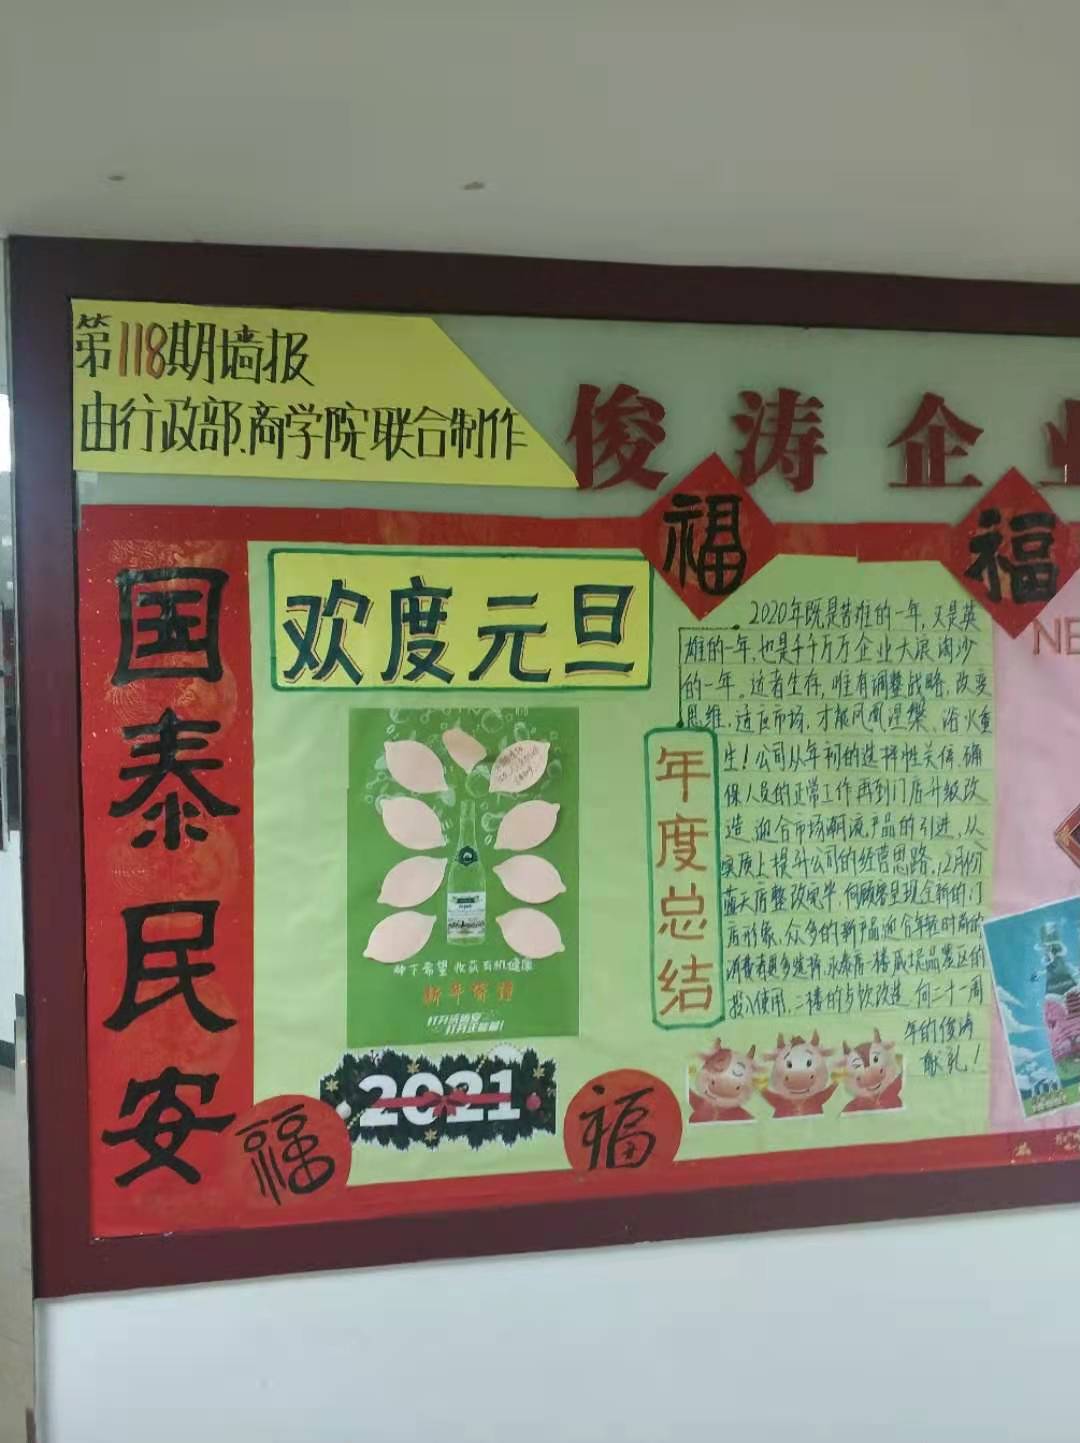 第118期墙报
由行政部、商学院联合制作
俊涛企业
福
福
国泰民安
欢度元旦
2020年既是苦难的一年，又是英
雄的一年，也是千千万万企业大浪淘沙
的一年。适者生存，唯有调整战略、改变
思维、适应市场，才能凤凰涅槃、浴火重
生！公司从年初的选择性关停，确
保人员的正常工作再到门店升级改
造、迎合市场潮流产品的引进，从
实质上提升公司的经营思路，12月份
蓝天店整改完毕，向顾客呈现全新的门
店形象，众多的新产品迎合年轻时尚的
消费者更多选择，永泰店一楼
品专区的
投入使用，二楼的
改造，向二十一周
年的俊涛
献礼！
年度总结
种下希望 收获有机健康
新年寄语
2021
福
福
NE